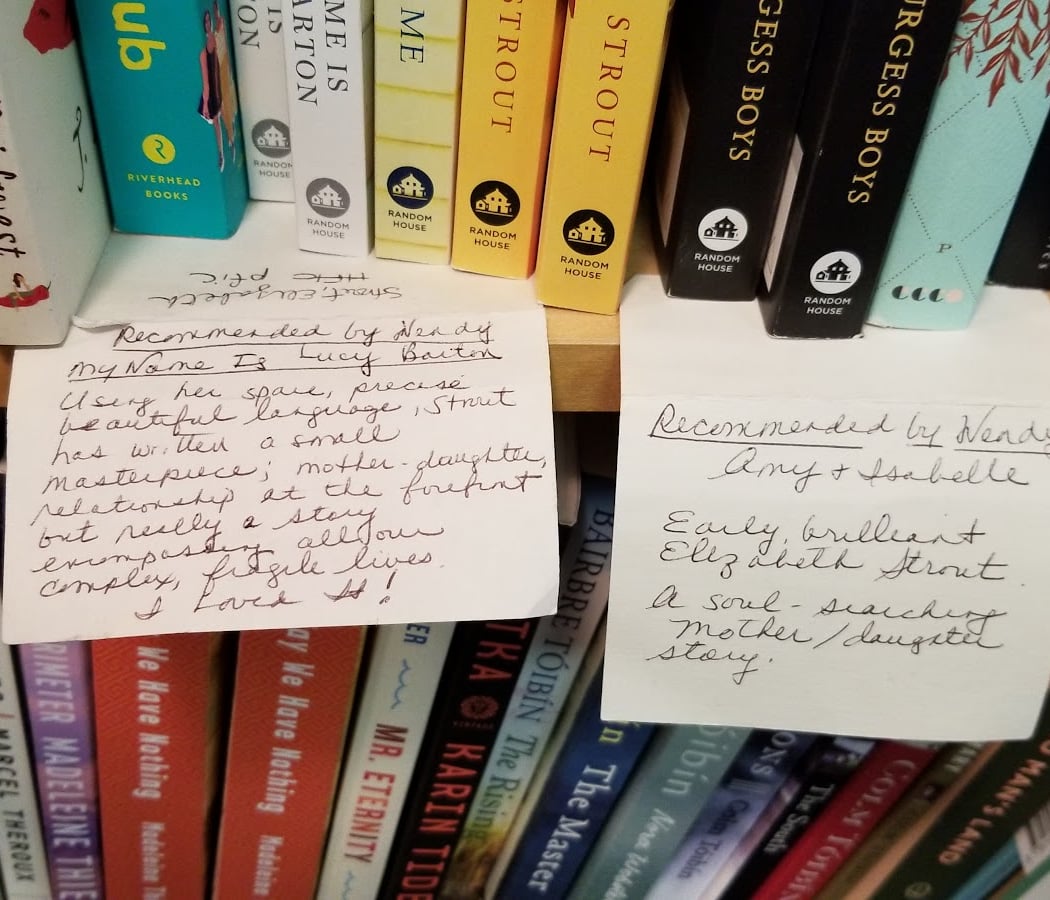 ub
RIVERHEAD
BOOKS
IS
TON
RANDOM
HOUSE
ME IS
ARTON
RANDOM
HOUSE
ME
RANDOM
HOUSE
STROUT
RANDOM
HOUSE
STROUT
RANDOM
HOUSE
GESS BOYS
RANDOM
HOUSE
URGESS BOYS
RANDOM
HOUSE
P
Strout, Elizabeth
pfic
Recommended by Wendy
My Name Is Lucy Barton
Using her spare, precise
beautiful language, Strout
has written a small
masterpiece; mother-daughter,
relationship at the forefront
but really a story
encompassing all our
complex, fragile lives.
I Loved It!
Recommended by Wendy
Amy + Isabelle
Early, brilliant
Elizabeth Strout.
A soul-searching
Mother/daughter
story.
MARCEL THEROUX
RIMETER MADELEINE THIE
We Have Nothing Madeleine Th
ay We Have Nothing Madeleine
ER MR. ETERNITY
TKA VINTAGE KARIN TIDB
BAIRBRE TÓIBÍN The Rising
n The Master
óibín Nora Webster
Colm Tóibín
The South
COLM TÓIBÍN
O MAN'S LAND